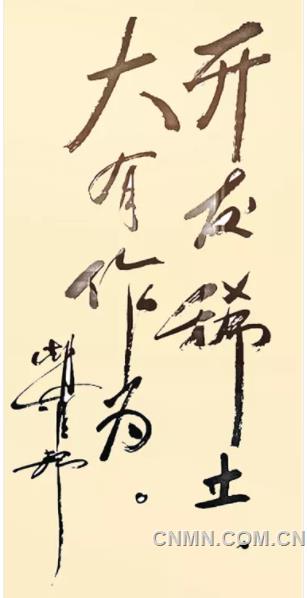 开发稀土.
大有作为。
胡耀邦
CNMN.COM.CN